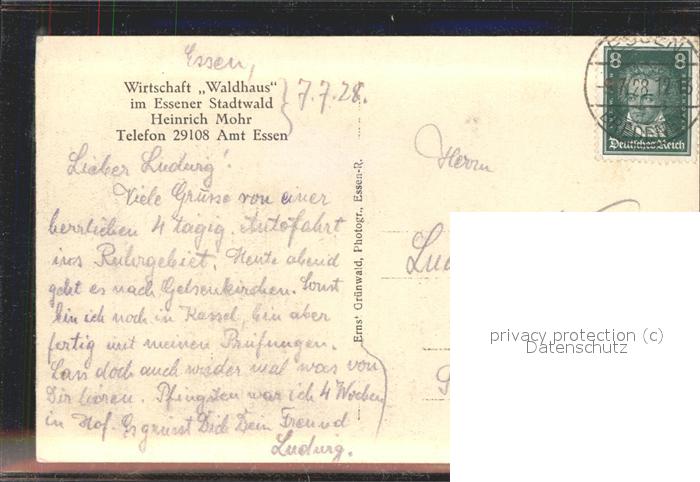 Essen,
7.7.28.
Wirtschaft „Waldhaus"
im Essener Stadtwald
Heinrich Mohr
Telefon 29108 Amt Essen
Lieber Ludwig!
Viele Grüsse von einer
herrlichen 4 tägig. Autofahrt
ins Ruhrgebiet. Heute abend
geht es nach Gelsenkirchen. Sonst
bin ich noch in Kassel, bin aber
fertig mit meinen Prüfungen.
Lass doch auch wieder mal was von
Dir hören. Pfingsten war ich 4 Wochen
in Hof. Es grüsst Dich Dein Freund
Ludwig.
Ernst Grünwald, Photogr., Essen-R.
8 8
Deutsches Reich
Herrn
Lud
privacy protection (c)
Datenschutz